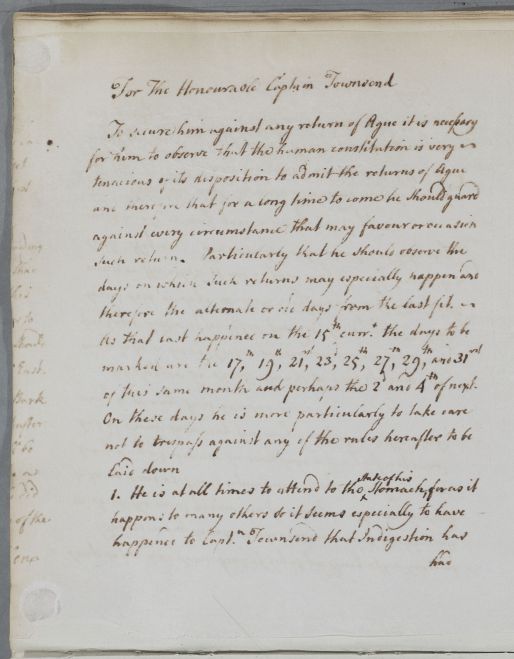 For The Honourable Captain Townsend
To secure him against any return of Ague it is necessary
for him to observe that the human constitution is very
tenacious of its disposition to admit the returns of Ague
and therefore that for a long time to come he should guard
against every circumstance that may favour or occasion
such return. Particularly that he should observe the
days on which such returns may especially happen and
therefore the alternate or odd days from the last fit.
As that last happened on the 15th currt the days to be
marked are the 17th, 19th, 21st, 23d, 25th, 27th, 29th, and 31st
of this same month and perhaps the 2d and 4th of next.
On these days he is more particularly to take care
not to trespass against any of the rules hereafter to be
laid down
1. He is at all times to attend to the state of his Stomach, for as it
happens to many others so it seems especially to have
happened to Captn Townsend that Indigestion has
had